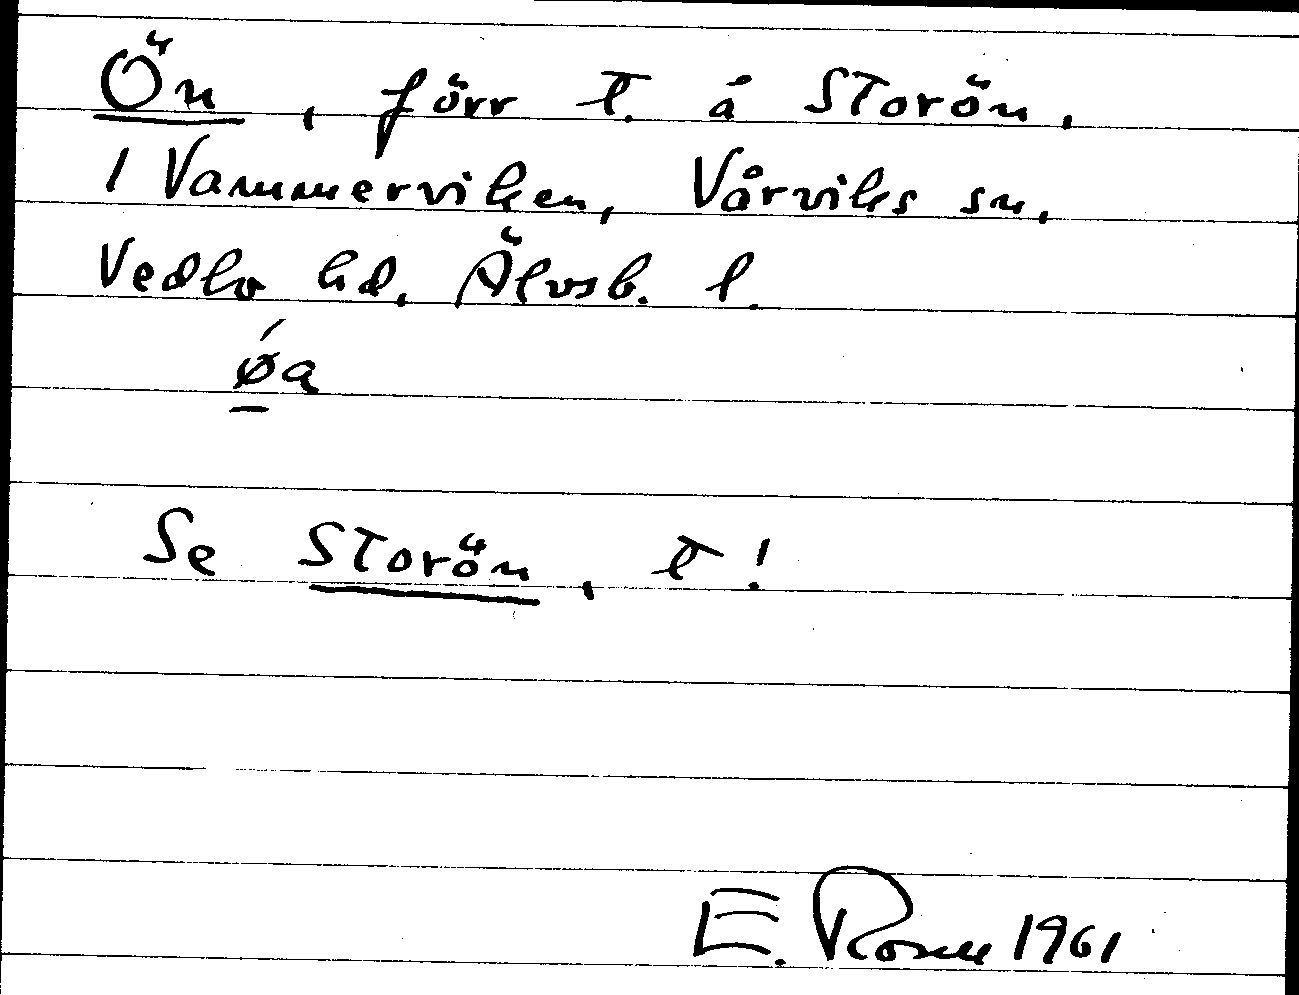 Ön, förr t. å Storön,
i Vammerviken, Vårviks sn,
Vedbo hd, Älvsb. l.
ǿa
Se Storön, t!
E. Rosell 1961